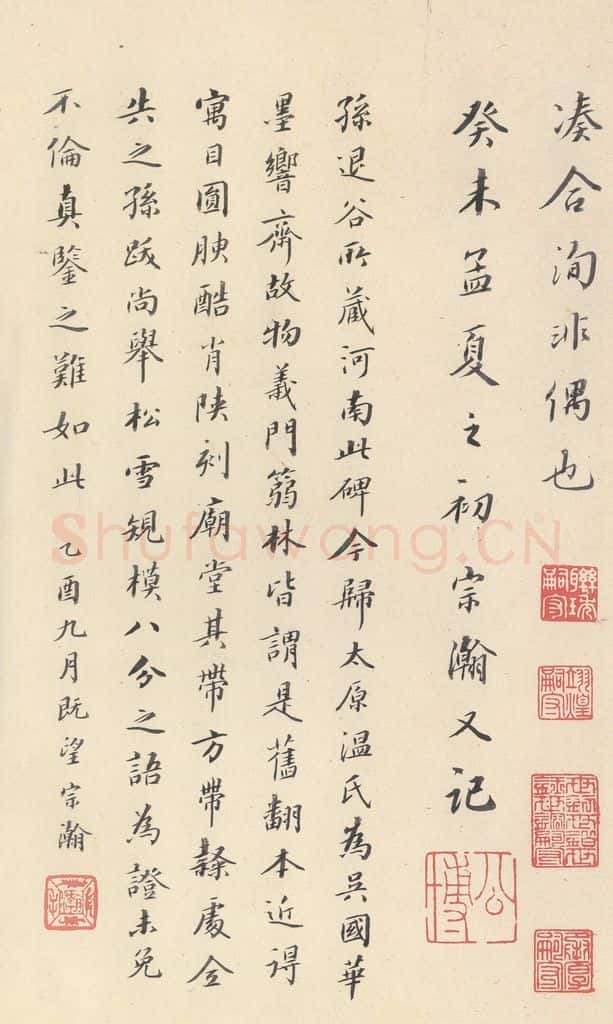 凑合洵非偶也
癸未孟夏之初宗瀚又记
孫退谷所藏河南此碑今歸太原温氏為吳國華
墨響齋故物義門蒻林皆謂是舊翻本近得
寓目圓腴酷肖陕刻廟堂其帶方帶隸處全
失之孫跋尚舉松雪規模八分之語為證未免
不倫真鑒之難如此 乙酉九月既望宗瀚
Shufawang.CN
公博